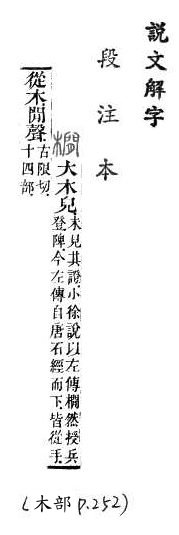 說文解字
段注本
橺 大木皃 未見其證小徐說以左傳橺然授兵
登陴今左傳自唐石經而下皆從手
從木閒聲 古限切
十四部
(木部 P.252)